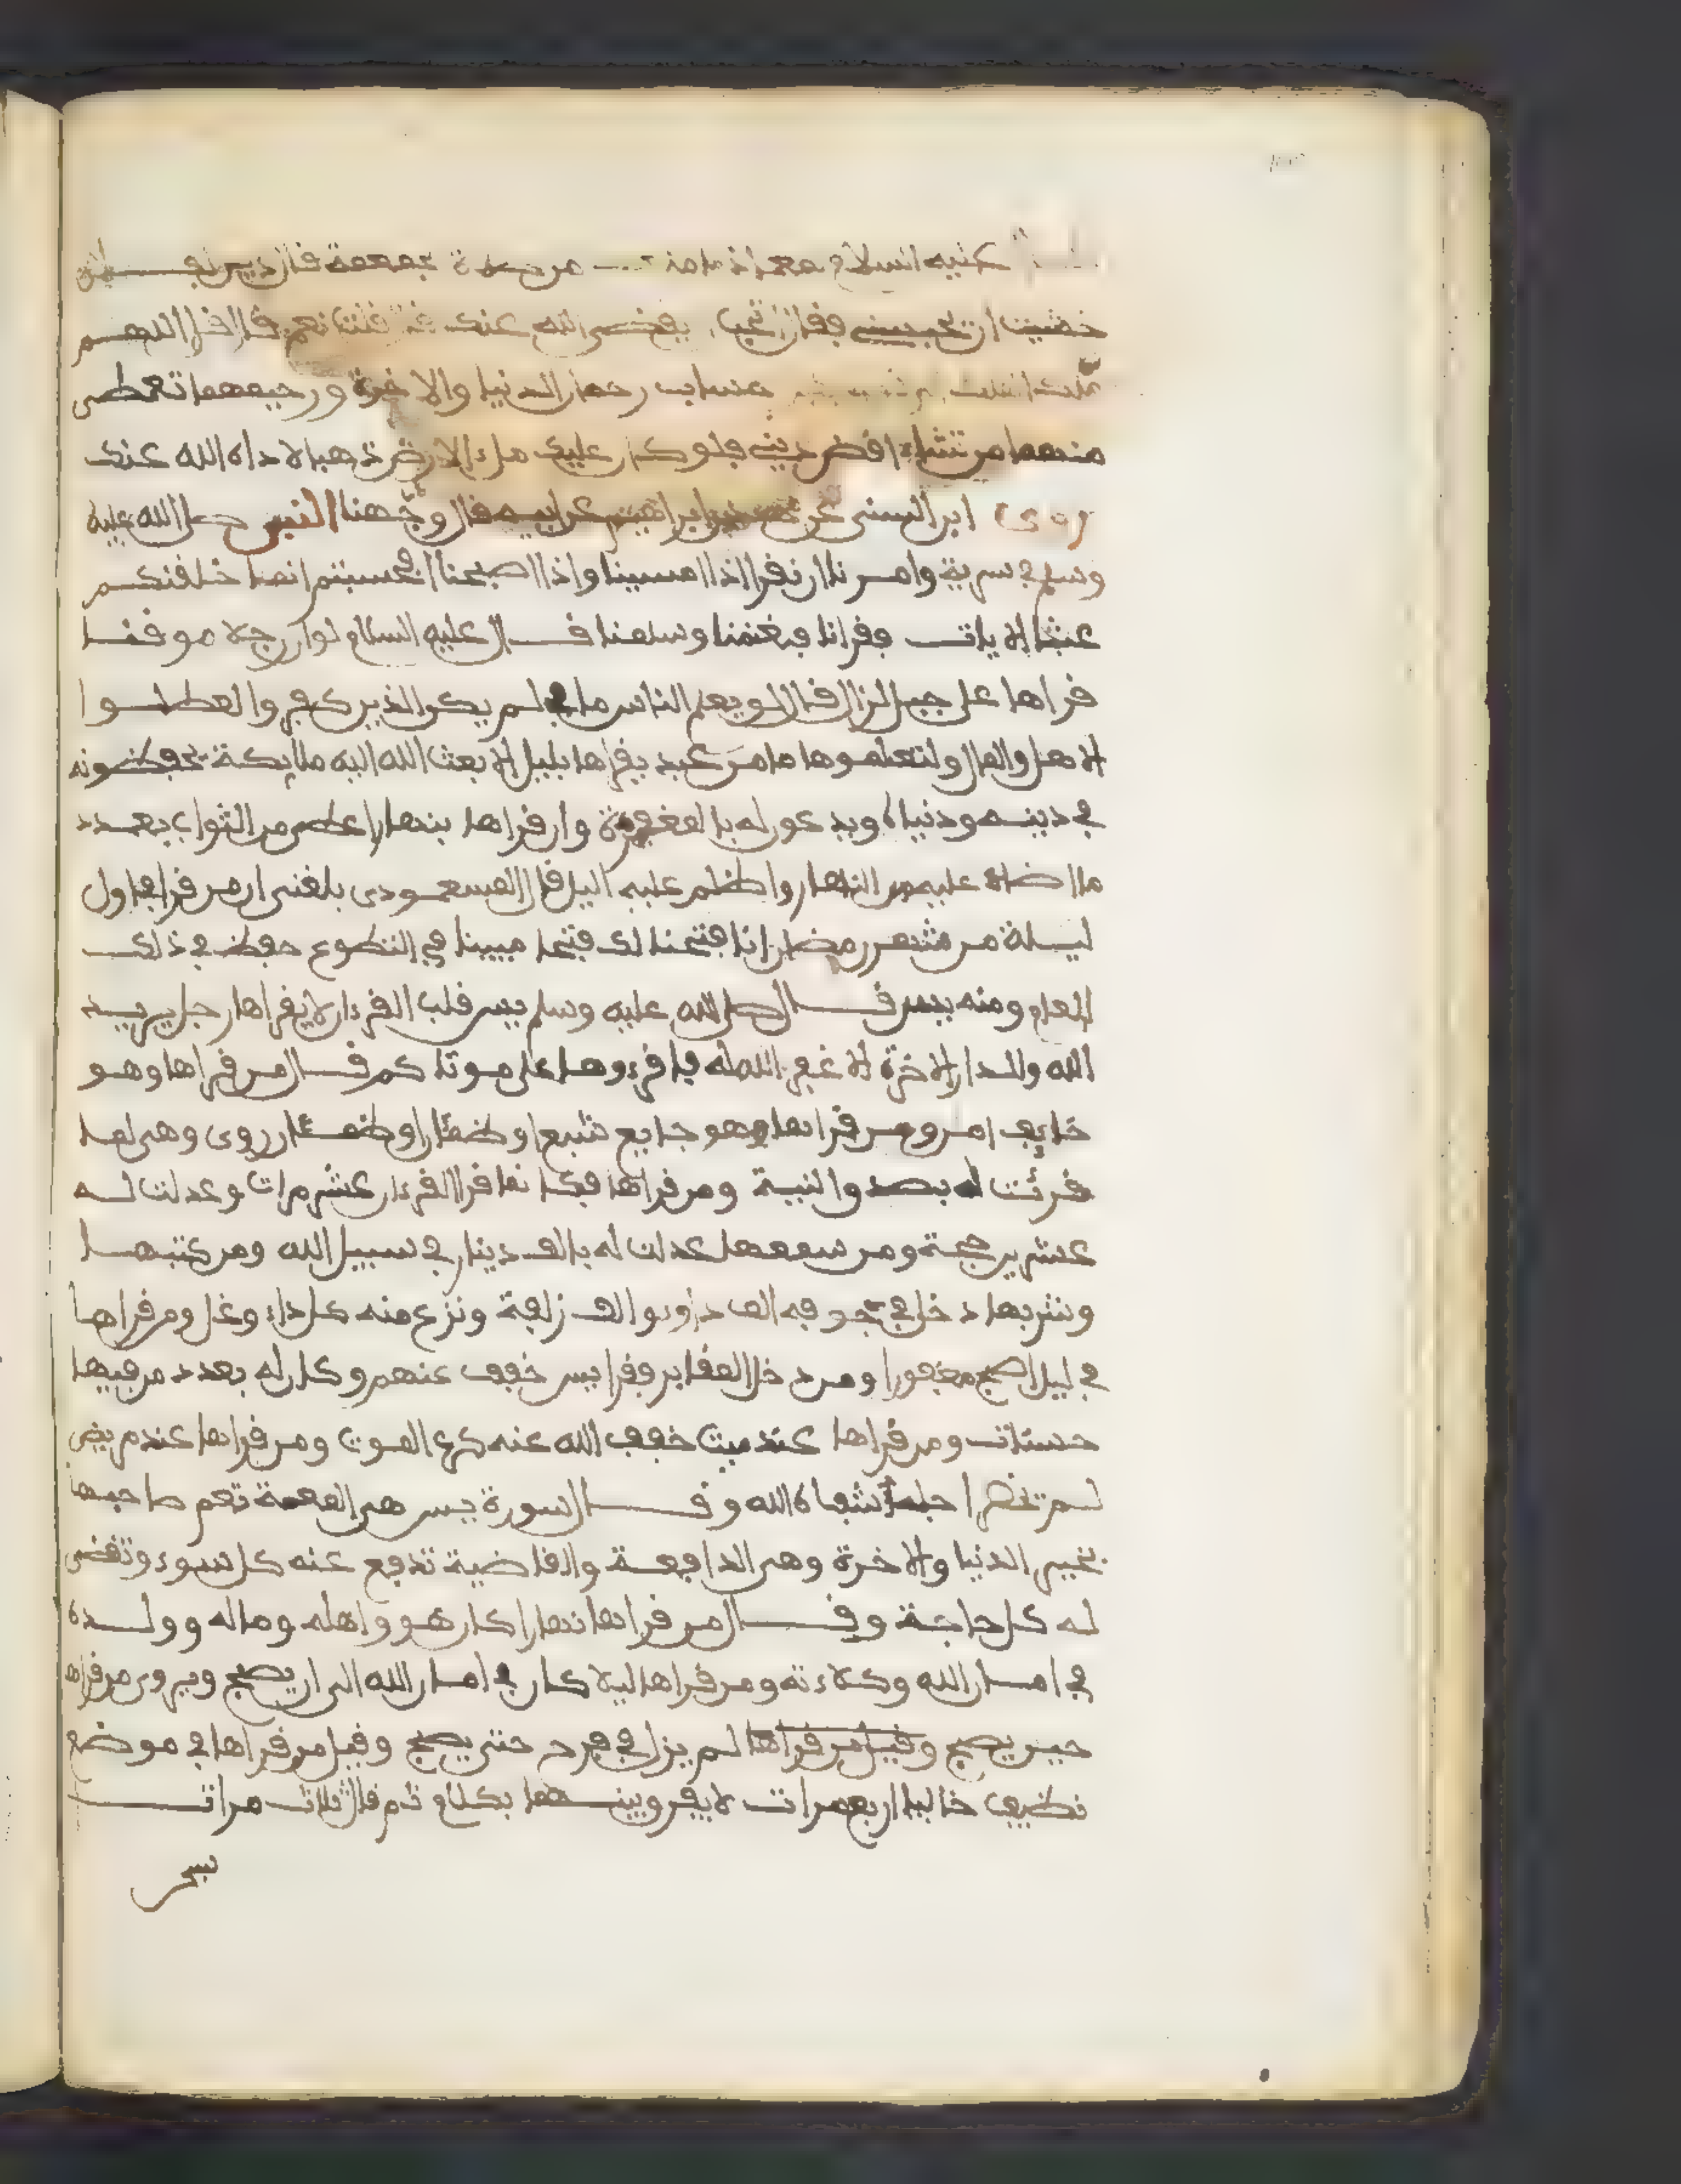 عليه السلام معاذا من صلاة جمعة فان دين
خشيت ان تحبسني فقال اتحب يفضى الله عنك قلت نعم قال قل اللهم
ملك رحمان الدنيا والاخرة ورحيمهما تعطى
منهما من تشاء افض ديني فلو كان عليك ملء الارض ذهبا لاداه الله عنك
روى ابن السنى عن محمد بن ابراهيم عن ابيه قال وجهنا النبى صلى الله عليه
وسلم في سرية وامرنا ان نقرا اذا امسينا واذا اصبحنا افحسبتم انما خلقنكم
عبثا الايات فقرانا فغنمنا وسلمنا قال عليه السلام لو ان رجلا موقنا
قراها على جبل لزال قال لو يعلم الناس ما في لم يكن الذين كفروا لعطلوا
الاهل والمال ولتعلموها ما من عبد يقراها بليل الا بعث الله اليه ملايكة يحفظونه
في دينه ودنياه ويدعون له بالمغفرة وان قراها بنهار اعطى من الثواب بعدد
ما اضاء عليه من النهار واظلم عليه اليل قال المسعودى بلغنى ان من قرا في اول
ليلة من شهر رمضان انا فتحنا لك فتحا مبينا في التطوع حفظ في ذلك
العام ومنه يس قال صلى الله عليه وسلم يس قلب القرءان لا يقراها رجل يريد
الله والدار الاخرة الا غفر الله له فاقرءوها على موتاكم قال من قراها وهو
خايف امن ومن قراها وهو جايع شبع او ظمئان روى وهى لما
قرئت له بصدق النية ومن قراها فكانما قرا القرءان عشر مرات وعدلت له
عشرين حجة ومن سمعها عدلت له بالف دينار في سبيل الله ومن كتبها
وشربها دخل في جوفه الف دواء والف زلفة ونزع منه كل داء وغل ومن قراها
في ليل اصبح مغفورا ومن دخل المقابر وقرا يس خفف عنهم وكان له بعدد من فيها
حسنات ومن قراها عند ميت خفف الله عنه كرب الموت ومن قراها عند مريض
لم تحضر اجله شفاه الله وقال سورة يس هى المعمة تعم صاحبها
بخير الدنيا والاخرة وهى الدافعة والقاضية تدفع عنه كل سوء وتقضى
له كل حاجة وقال من قراها نهارا كان هو واهله وماله وولده
في امان الله وكلاءته ومن قراها ليلا كان في امان الله الى ان يصبح ويروى من قراها
حين يصبح وقيل من قراها لم يزل في فرح حتى يصبح وقيل من قراها في موضع
نظيف خاليا اربع مرات لا يفرق بينهما بكلام ثم قال ثلاث مرات